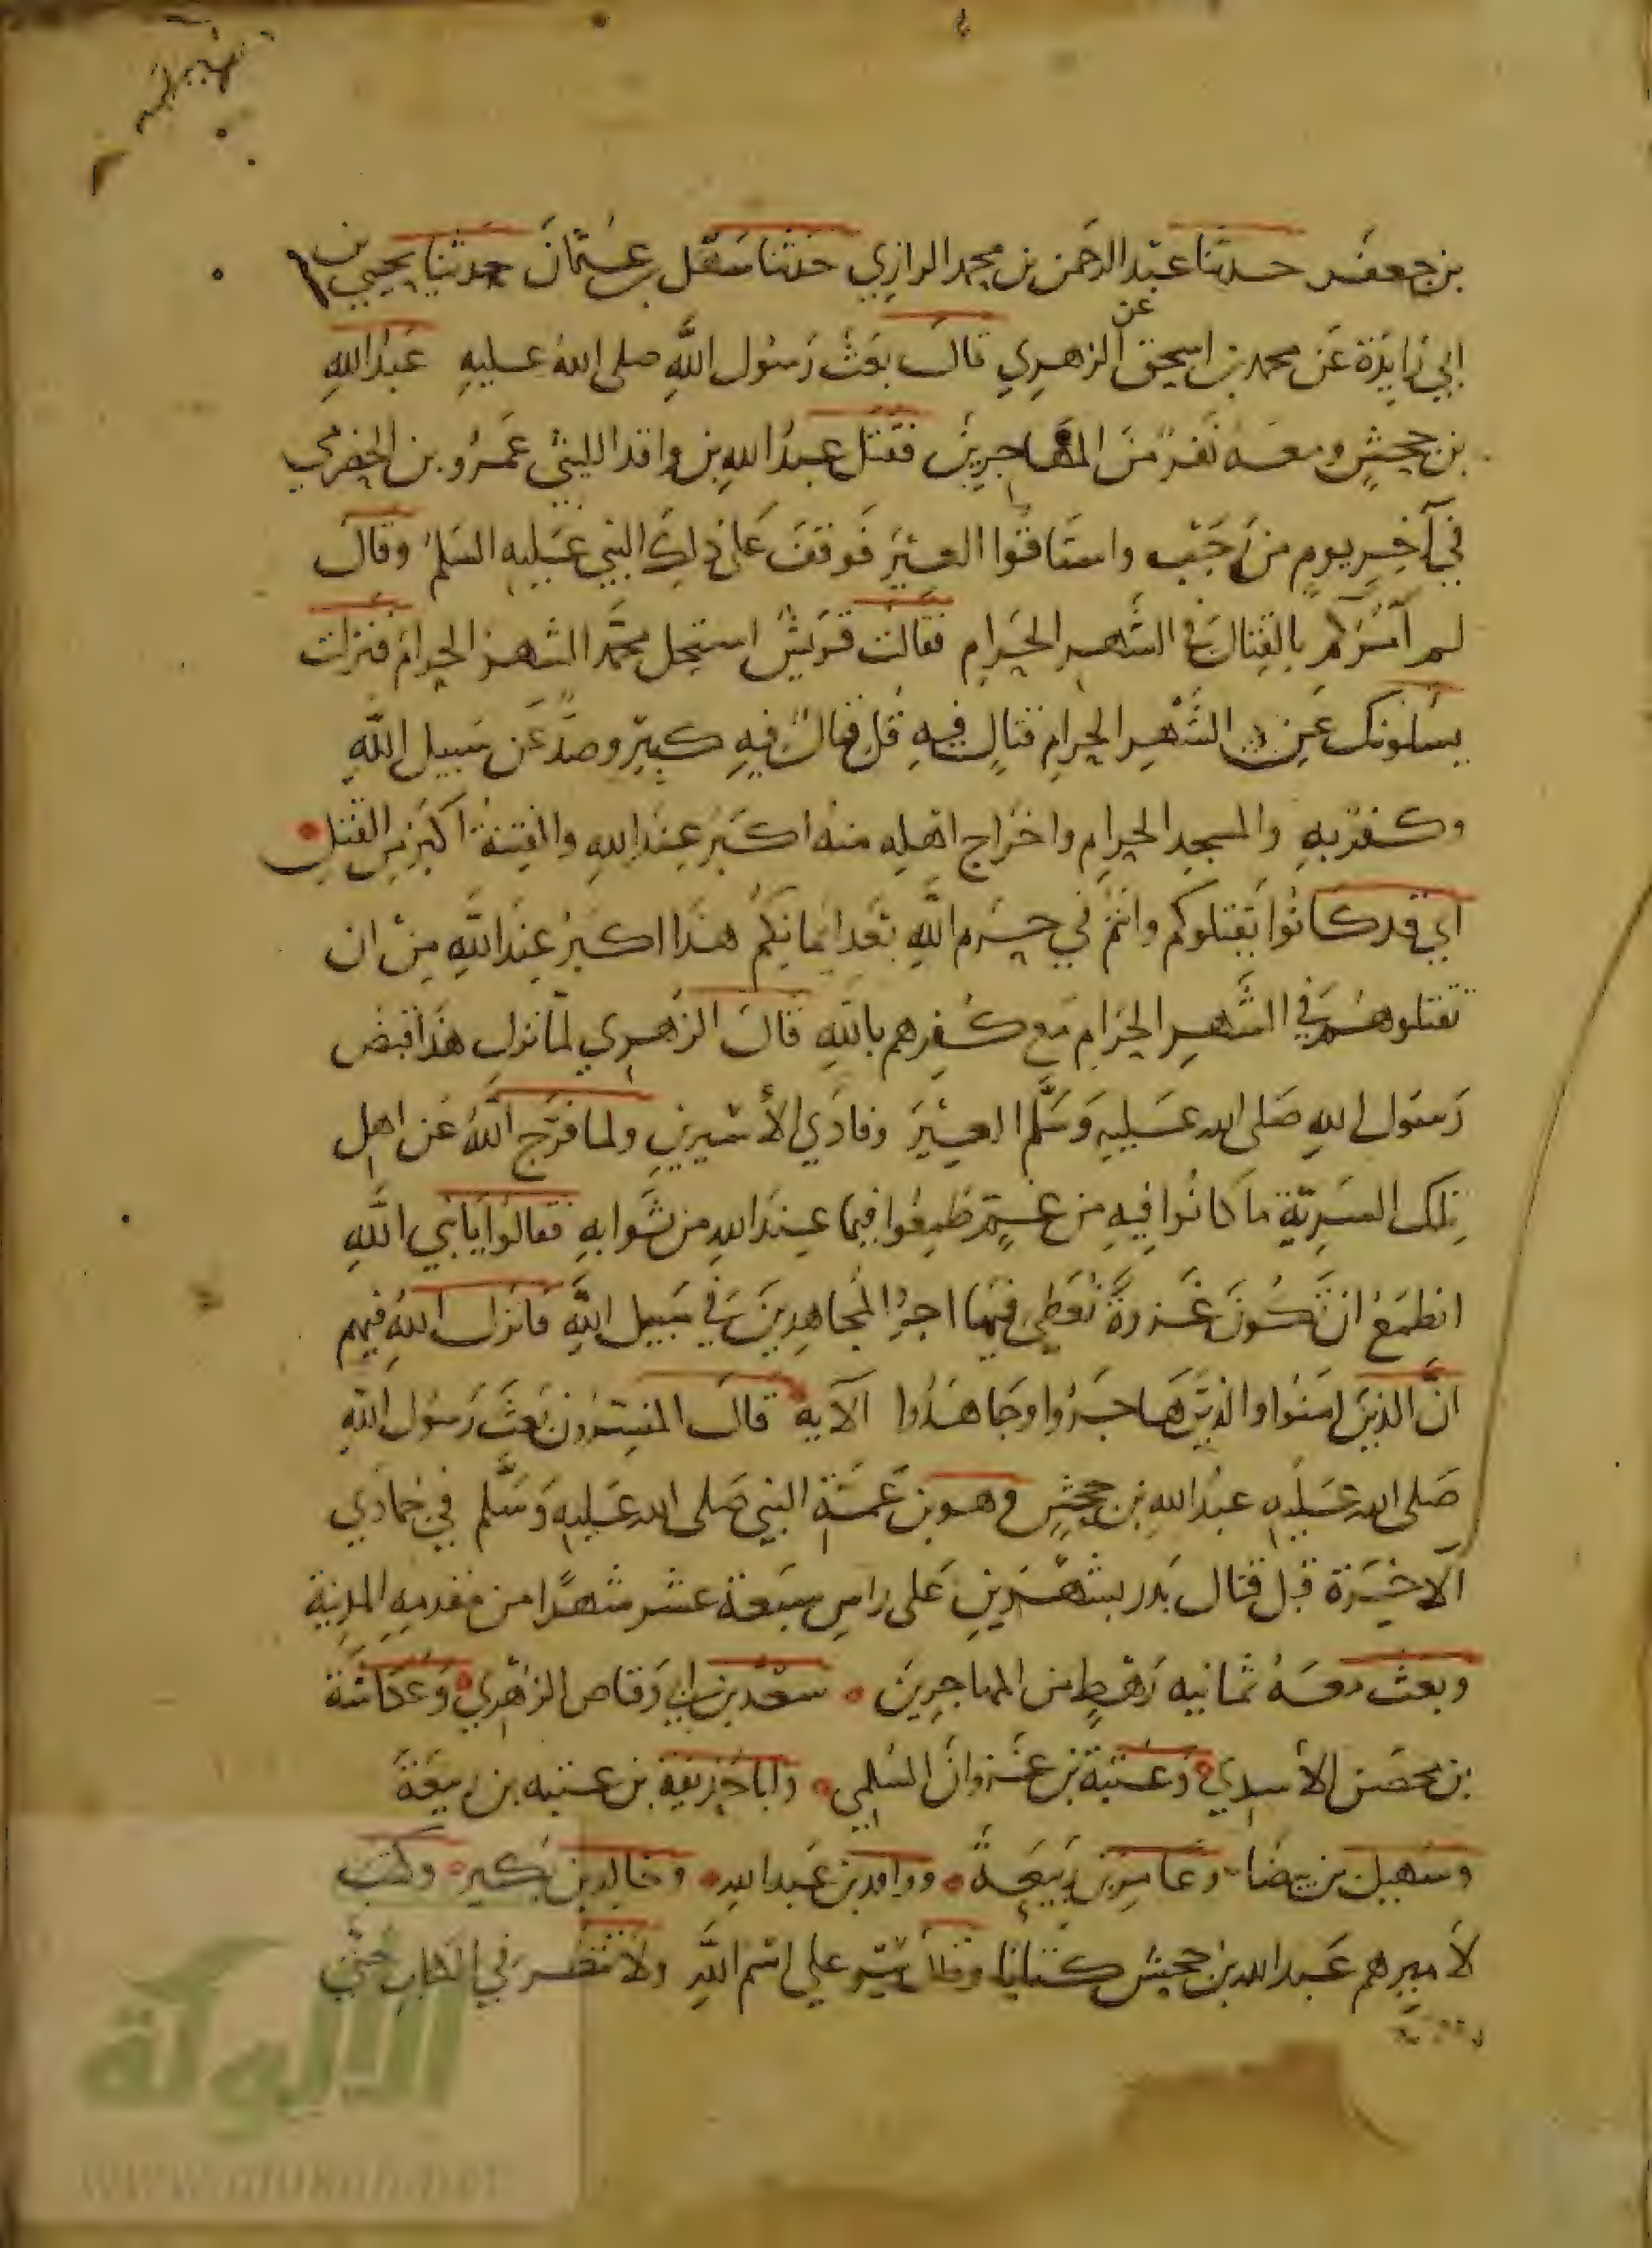 بن جعفر حدثنا عبد الرحمن بن محمد الرازي حدثنا سهل بن عثمان حدثنا يحيى بن
ابي زايدة عن محمد بن اسحق عن الزهري قال بعث رسول الله صلى الله عليه عبد الله
بن جحش ومعه نفر من المهاجرين فقتل عبد الله بن واقد الليثي عمرو بن الحضرمي
في آخر يوم من رجب واستاقوا العير فوقف على ذلك النبي عليه السلم وقال
لم آمركم بالقتال في الشهر الحرام فقالت قريش استحل محمد الشهر الحرام فنزلت
يسلونك عن الشهر الحرام قتال فيه قل قتال فيه كبير وصد عن سبيل الله
وكفر به والمسجد الحرام واخراج اهله منه اكبر عند الله والفتنة اكبر من القتل
اي قد كانوا يقتلوكم وانتم في حرم الله بعد ايمانكم هذا اكبر عند الله من ان
تقتلوهم في الشهر الحرام مع كفرهم بالله قال الزهري لما نزل هذا قبض
رسول الله صلى الله عليه وسلم العير وفادي الأسيرين ولما فرج الله عن اهل
تلك السرية ما كانوا فيه من غم طمعوا فيما عند الله من ثوابه فقالوا يا نبي الله
انطمع ان تكون غزوة نعطى فيها اجر المجاهدين في سبيل الله فانزل الله فيهم
ان الذين امنوا والذين هاجروا وجاهدوا الآية قال المفسرون بعث رسول الله
صلى الله عليه عبد الله بن جحش وهو بن عمة النبي صلى الله عليه وسلم في جمادي
الآخرة قبل قتال بدر بشهرين على راس سبعة عشر شهرا من مقدمه المدينة
وبعث معه ثمانيه رهط من المهاجرين سعد بن ابي وقاص الزهري وعكاشة
بن محصن الأسدي وعتبة بن غزوان السلمي وابا حذيفة بن عتبه بن ربيعة
وسهيل بن بيضا وعامر بن ربيعة وواقد بن عبد الله وخالد بن بكير وكتب
لأميرهم عبد الله بن جحش كتابا وقال سر على اسم الله ولا تنظر في الكتاب حتى
الألوكة
www.alukah.net